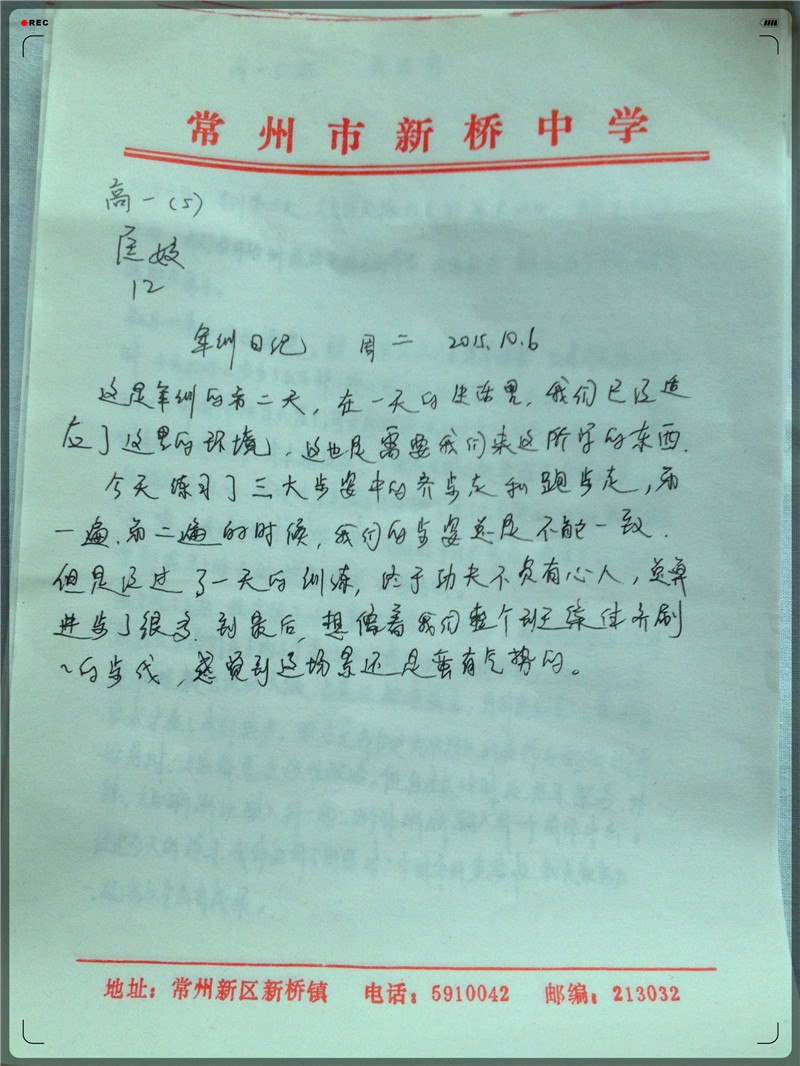 REC
常州市新桥中学
高一(5)
匡姣
12
军训日记 周二 2015.10.6
这是军训的第二天，在一天的生活里，我们已经适
应了这里的环境，这也是需要我们来这所学的东西.
今天练习了三大步姿中的齐步走和跑步走，第
一遍、第二遍的时候，我们的步姿总是不能一致.
但是经过了一天的训练，终于功夫不负有心人，总算
进步了很多. 到最后，想像着我们整个班级集体齐刷
~的步伐，感觉到这场景还是蛮有气势的。
地址：常州新区新桥镇 电话：5910042 邮编：213032